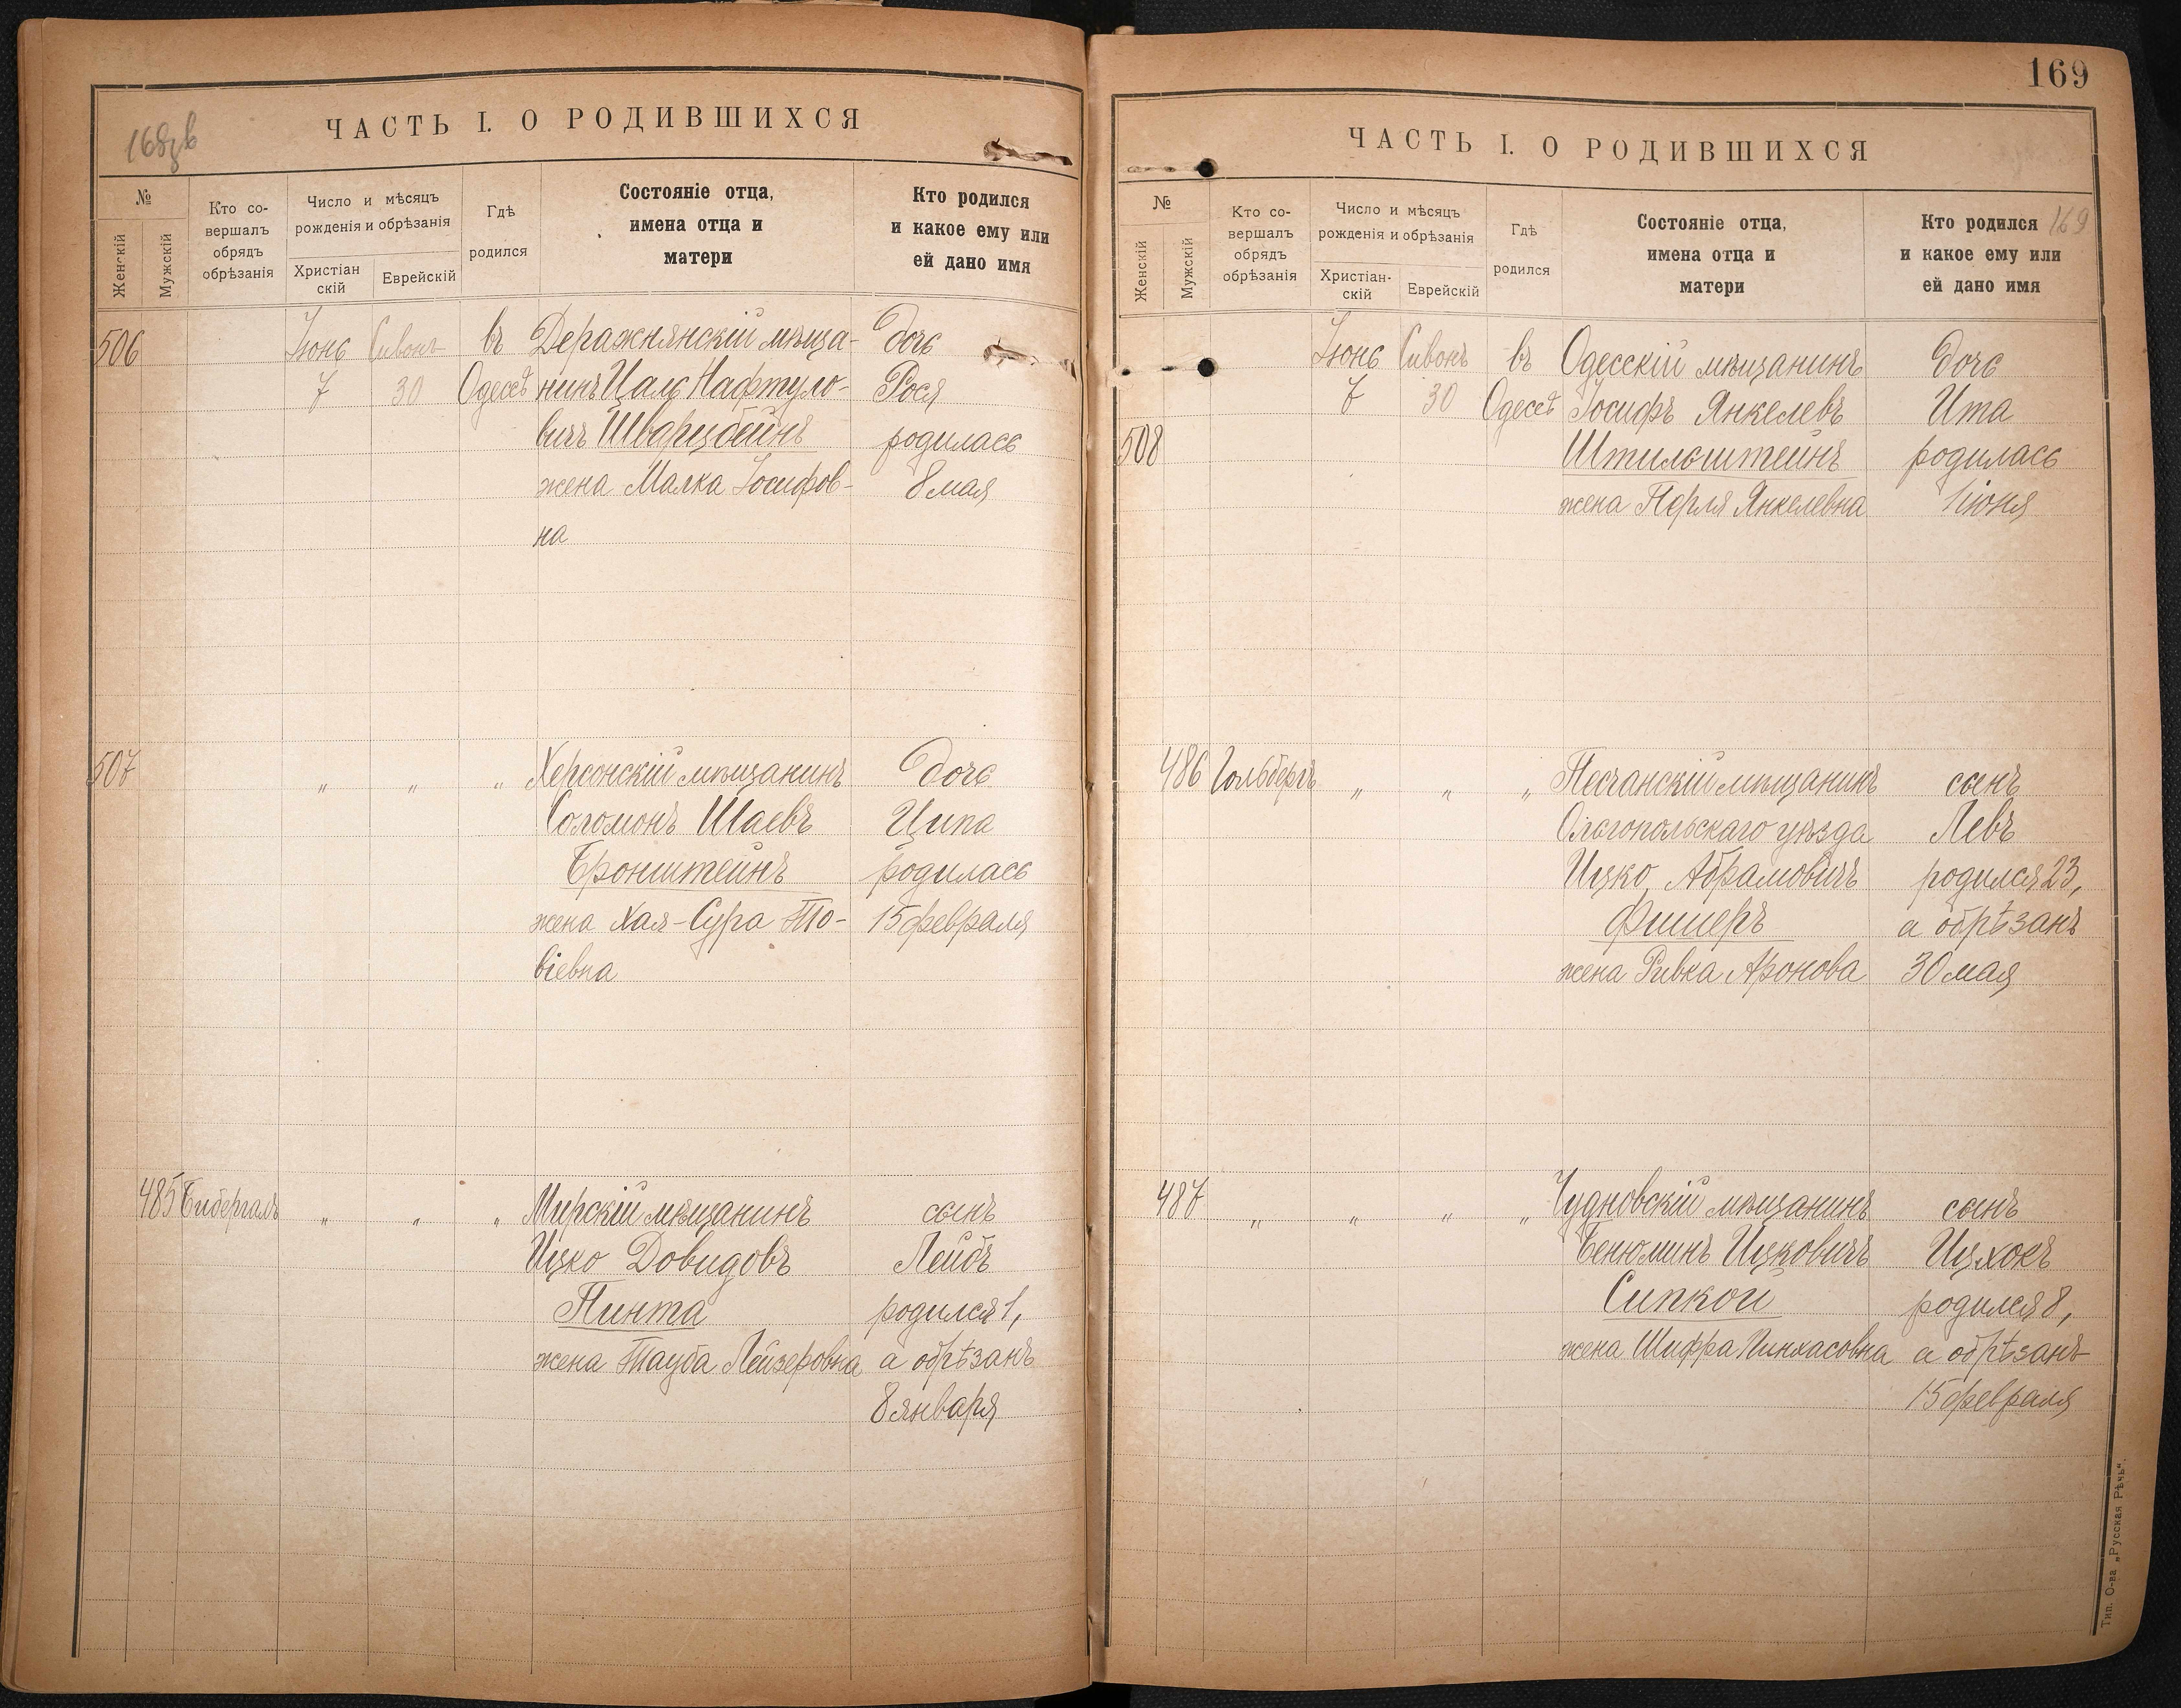 168зв
ЧАСТЬ I. О РОДИВШИХСЯ
№
Женскій
Мужскій
Кто со-
вершалъ
обрядъ
обрѣзанія
Число и мѣсяцъ
рожденія и обрѣзанія
Христіан
скій
Еврейскій
Гдѣ
родился
Состояніе отца,
имена отца и
матери
Кто родился
и какое ему или
ей дано имя
506 Іюнь Сивонъ въ Деражнянскій мѣща- дочь
7 30 Одессѣ нинъ Цаль Нафтуло- Рося
вичъ Шварцбейнъ родилась
жена Малка Іосифов- 8 мая
на
507 " " " Херсонскій мѣщанинъ дочь
Соломонъ Шаевъ Ципа
Бронштейнъ родилась
жена Хая-Сура То- 15 февраля
віевна
485 Бибергалъ " " " Мирскій мѣщанинъ сынъ
Ицко Довидовъ Лейбъ
Пинта родился 1,
жена Тауба Лейзеровна а обрѣзанъ
8 января
169
ЧАСТЬ I. О РОДИВШИХСЯ
№
Женскій
Мужскій
Кто со-
вершалъ
обрядъ
обрѣзанія
Число и мѣсяцъ
рожденія и обрѣзанія
Христіан-
скій
Еврейскій
Гдѣ
родился
Состояніе отца,
имена отца и
матери
Кто родился 169
и какое ему или
ей дано имя
Іюнь Сивонъ въ Одесскій мѣщанинъ дочь
7 30 Одессѣ Іосифъ Янкелевъ Ита
508 Штильштейнъ родилась
жена Перля Янкелевна 1 іюня
486 Гольдбергъ " " " Песчанскій мѣщанинъ сынъ
Ольгопольскаго уѣзда Левъ
Ицко Абрамовичъ родился 23,
Фишеръ а обрѣзанъ
жена Ривка Аронова 30 мая
487 " " " " Чудновскій мѣщанинъ сынъ
Бенюминъ Ицковичъ Ицхокъ
Сипкой родился 8,
жена Шифра Пинхасовна а обрѣзанъ
15 февраля
Тип. О-ва „Русская Рѣчь".